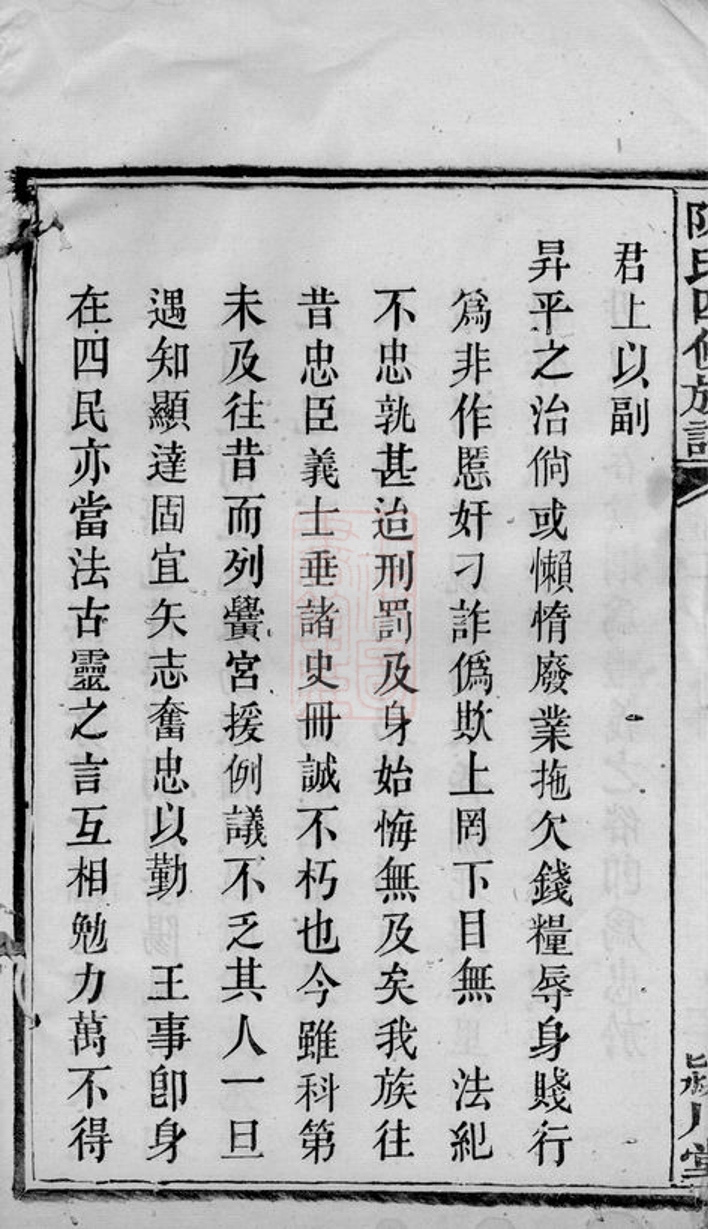 陳氏四修族譜
潁川堂
君上以副
昇平之治倘或懶惰廢業拖欠錢糧辱身賤行
爲非作慝奸刁詐僞欺上罔下目無　法紀
不忠孰甚迨刑罰及身始悔無及矣我族往
昔忠臣義士垂諸史冊誠不朽也今雖科第
未及往昔而列黌宮援例議不乏其人一旦
遇知顯達固宜矢志奮忠以勤　王事卽身
在四民亦當法古靈之言互相勉力萬不得